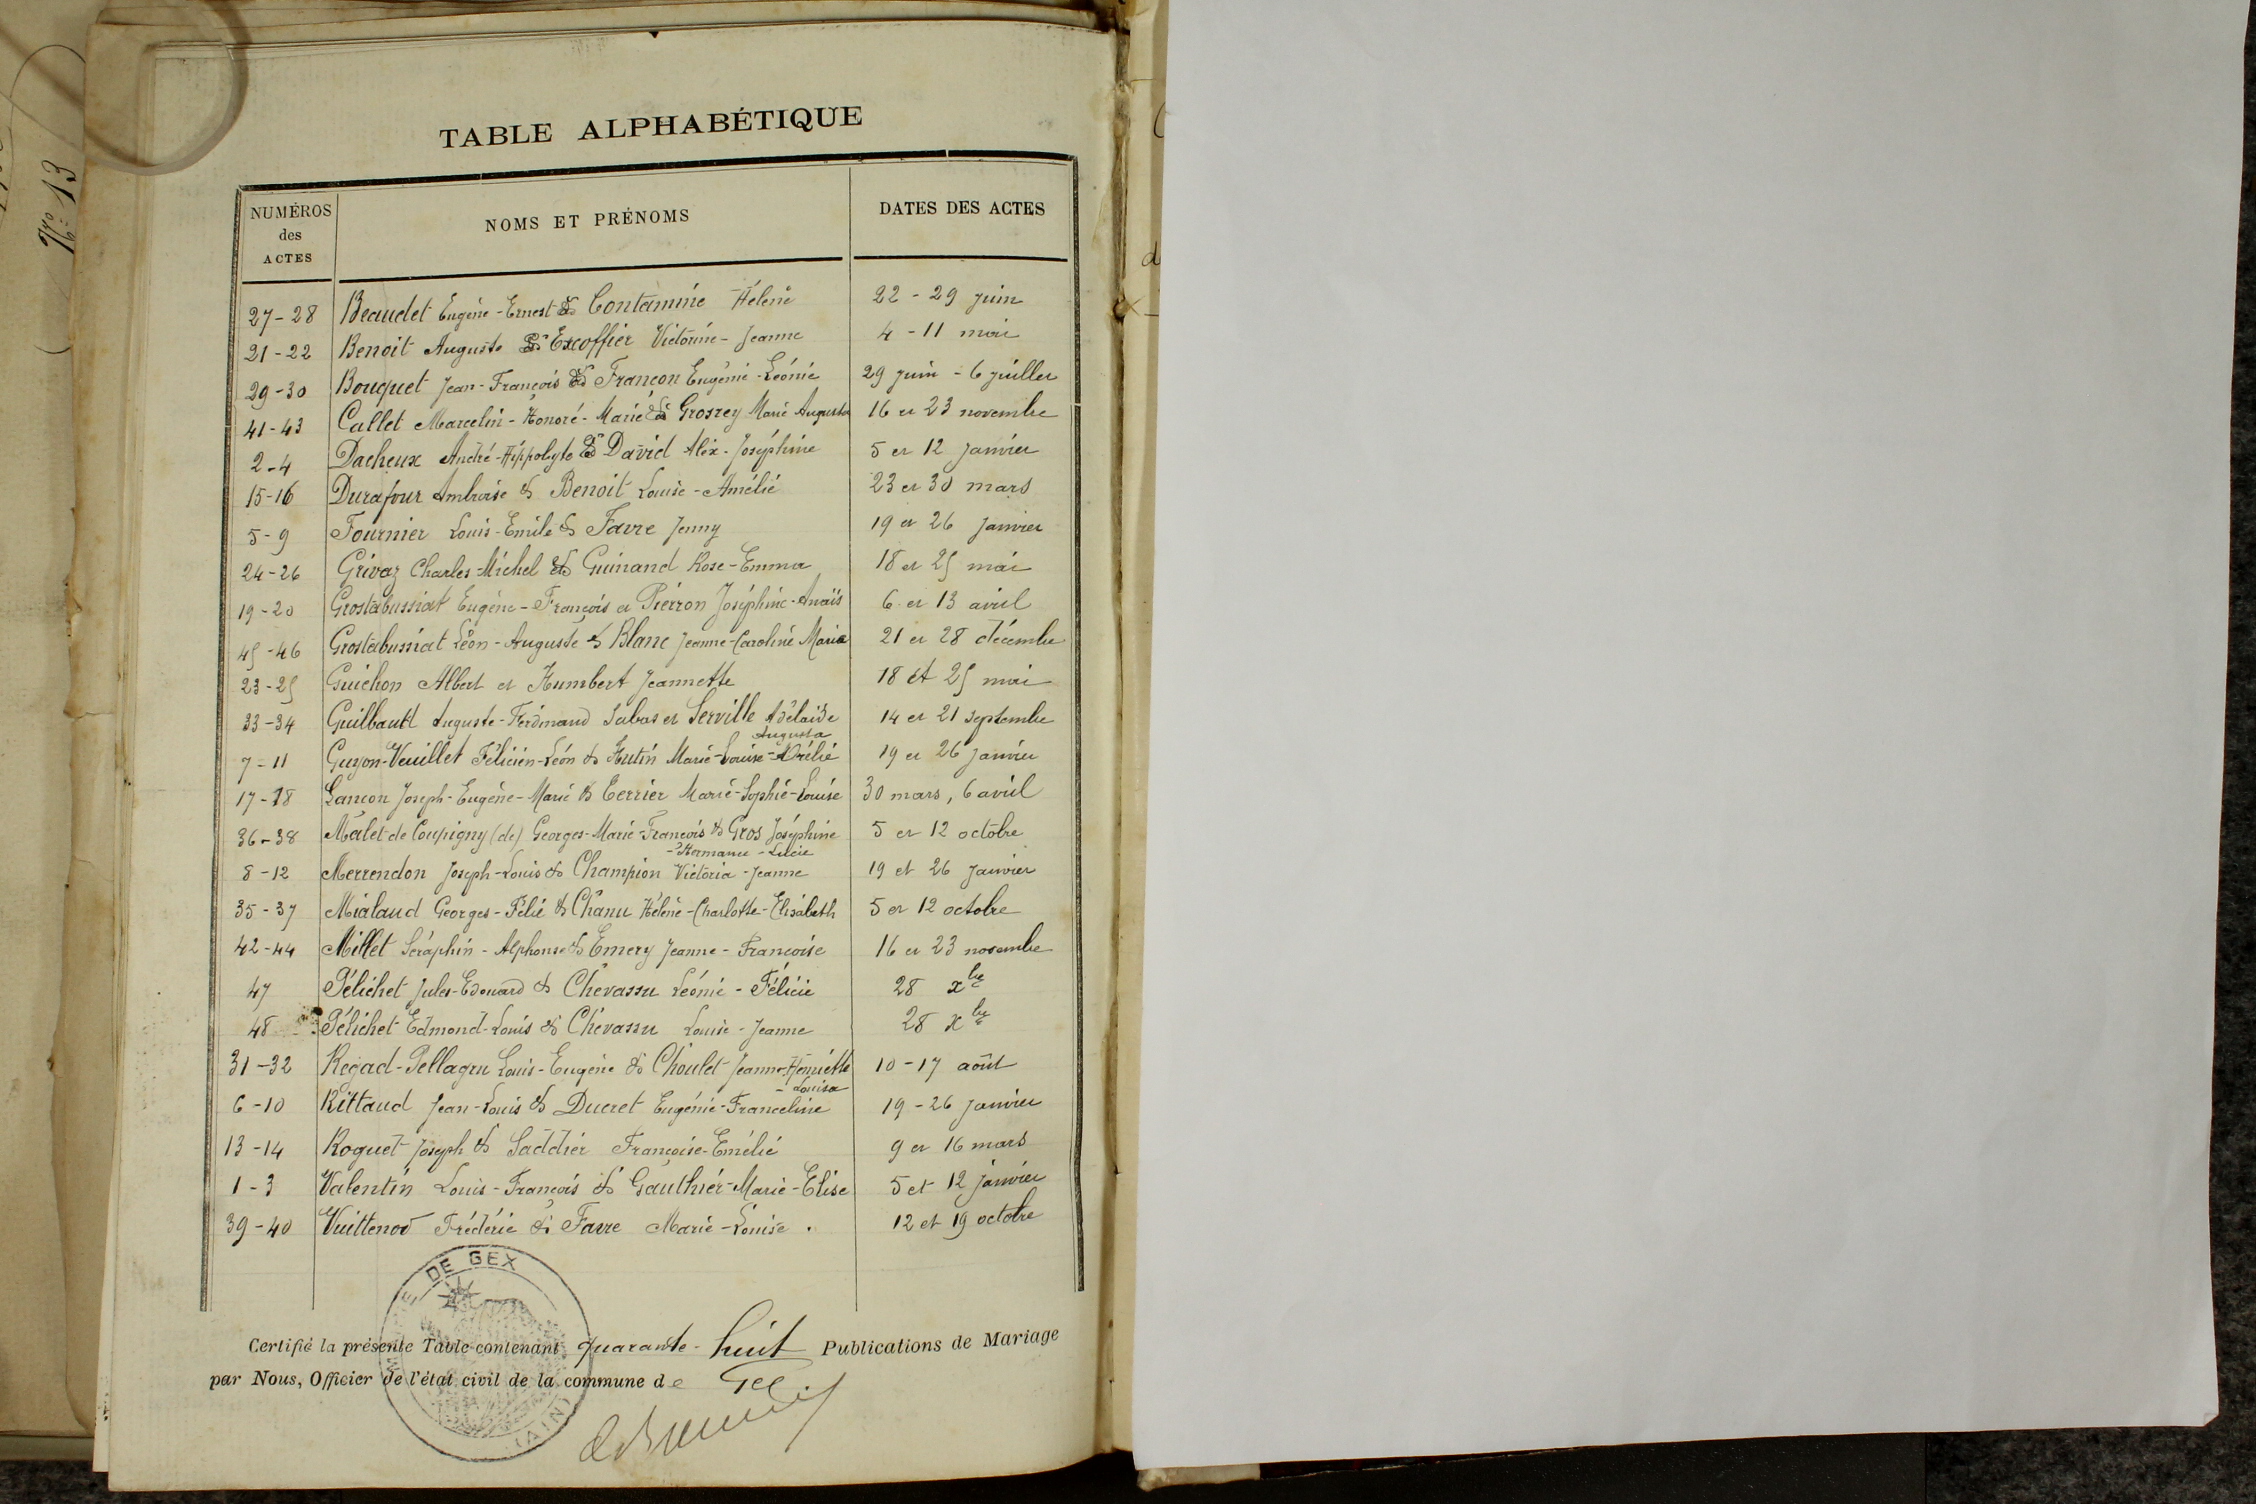 N° 13
TABLE ALPHABÉTIQUE
NUMÉROS des ACTES
NOMS ET PRÉNOMS
DATES DES ACTES
27-28 Beaudet Eugène-Ernest & Contamine Hélène 22 - 29 juin
21-22 Benoit Auguste & Escoffier Victorine-Jeanne 4 - 11 mai
29-30 Bouquet Jean-François & Françon Eugénie-Léonie 29 juin - 6 juillet
41-43 Callet Marcelin-Honoré-Marie & Grosrey Marie Augusta 16 et 23 novembre
2-4 Dacheux André-Hippolyte & David Alix-Joséphine 5 et 12 janvier
15-16 Durafour Ambroise & Benoit Louise-Amélie 23 et 30 mars
5-9 Fournier Louis-Emile & Favre Jenny 19 et 26 janvier
24-26 Grivaz Charles-Michel & Guinand Rose-Emma 18 et 25 mai
19-20 Grostabussiat Eugène-François et Pierron Joséphine-Anaïs 6 et 13 avril
45-46 Grostabussiat Léon-Auguste & Blanc Jeanne-Caroline Maria 21 et 28 décembre
23-25 Guichon Albert et Humbert Jeannette 18 et 25 mai
33-34 Guilbault Auguste-Ferdinand Sabas et Serville Adélaïde Augusta 14 et 21 septembre
7-11 Guyon-Veuillet Félicien-Léon & Hutin Marie-Louise- 19 et 26 janvier
17-18 Lançon Joseph-Eugène-Marie & Terrier Marie-Sophie-Louise 30 mars, 6 avril
36-38 Malet de Coupigny (de) Georges-Marie-François & Gros Joséphine -Hermance-Lucie 5 et 12 octobre
8-12 Merrendon Joseph-Louis & Champion Victoria-Jeanne 19 et 26 janvier
35-37 Mialaud Georges-Félié & Chanu Hélène-Charlotte-Elisabeth 5 et 12 octobre
42-44 Millet Séraphin-Alphonse & Emery Jeanne-Françoise 16 et 23 novembre
47 Pélichet Jules-Edouard & Chevassu Léonie-Félicie 28 xbre
48 Pélichet Edmond-Louis & Chevassu Louise-Jeanne 28 xbre
31-32 Regad-Pellagru Louis-Eugène & Choulet Jeanne-Henriette -Louisa 10-17 août
6-10 Rittaud Jean-Louis & Ducret Eugénie-Franceline 19-26 janvier
13-14 Roguet Joseph & Saddier Françoise-Emélie 9 et 16 mars
1-3 Valentin Louis-François & Gauthier-Marie-Elise 5 et 12 janvier
39-40 Vuittenod Frédéric & Favre Marie-Louise. 12 et 19 octobre
MAIRIE DE GEX (AIN)
Certifié la présente Table contenant quarante-huit Publications de Mariage
par Nous, Officier de l'état civil de la commune de Gex